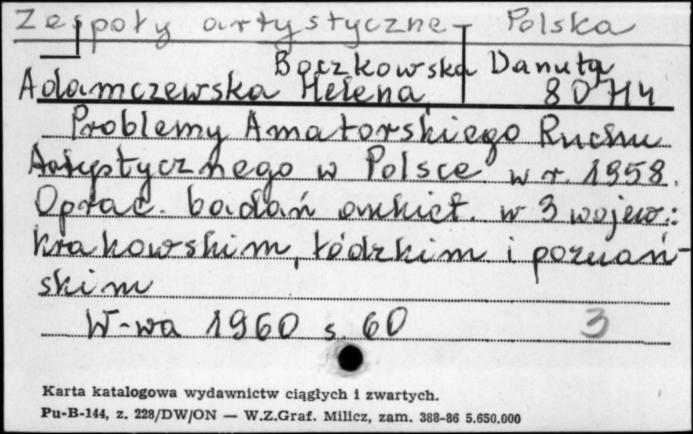 Zespoły artystyczne – Polska
Boczkowska Danuta
Adamczewska Helena 80714
Problemy Amatorskiego Ruchu
Artystycznego w Polsce w r. 1958.
Oprac. badań ankiet. w 3 wojew.:
krakowskim, łódzkim i poznań-
skim
W-wa 1960 s. 60 3
Karta katalogowa wydawnictw ciągłych i zwartych.
Pu-B-144, z. 228/DW/ON — W.Z.Graf. Milicz, zam. 388-86 5.650.000